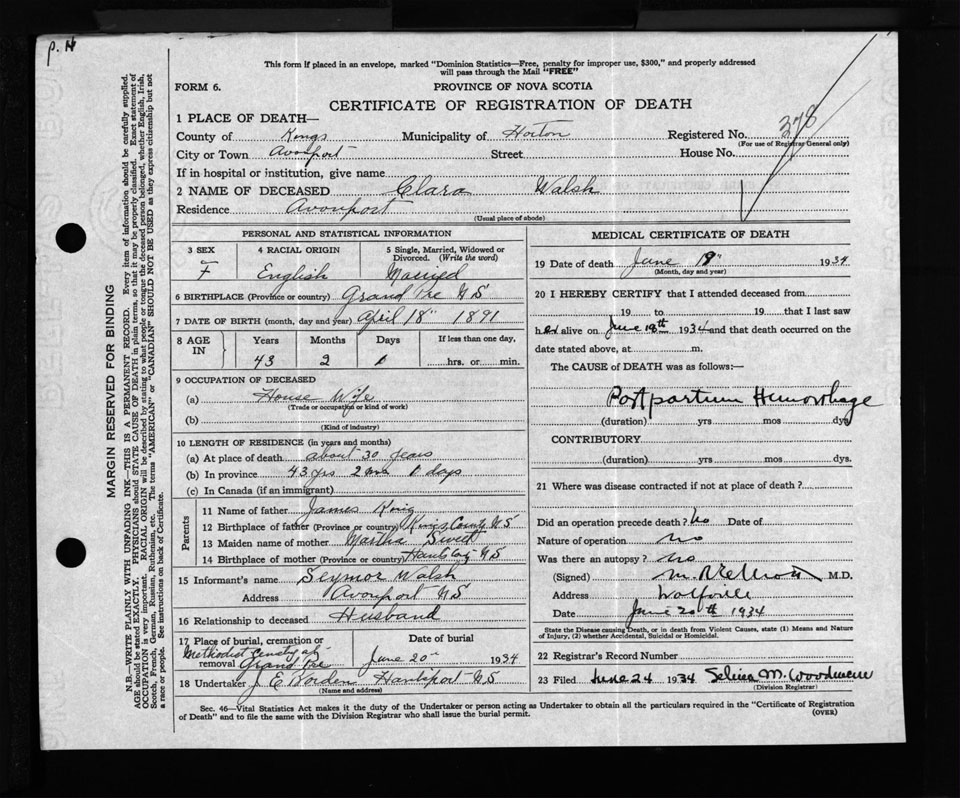 p. H
This form if placed in an envelope, marked "Dominion Statistics—Free, penalty for improper use, $300," and properly addressed
will pass through the Mail "FREE"
FORM 6.
PROVINCE OF NOVA SCOTIA
CERTIFICATE OF REGISTRATION OF DEATH
1 PLACE OF DEATH—
County of Kings Municipality of Horton Registered No. 378
(For use of Registrar General only)
City or Town Avonport Street House No.
If in hospital or institution, give name
2 NAME OF DECEASED Clara Walsh
Residence Avonport
(Usual place of abode)
MARGIN RESERVED FOR BINDING
N.B.—WRITE PLAINLY WITH UNFADING INK—THIS IS A PERMANENT RECORD. Every item of information should be carefully supplied.
AGE should be stated EXACTLY. PHYSICIANS should STATE CAUSE OF DEATH in plain terms, so that it may be properly classified. Exact statement of
OCCUPATION is very important. RACIAL ORIGIN will be described by stating to what people or tongue the deceased person belonged, whether English, Irish,
Scotch, French, German, Russian, Ruthenian, etc. The terms "AMERICAN" or "CANADIAN" SHOULD NOT BE USED as they express citizenship but not
a race or people. See instructions on back of Certificate.
PERSONAL AND STATISTICAL INFORMATION
3 SEX 4 RACIAL ORIGIN 5 Single, Married, Widowed or
Divorced. (Write the word)
F English Married
6 BIRTHPLACE (Province or country) Grand Pre N S
7 DATE OF BIRTH (month, day and year) April 18" 1891
8 AGE IN Years Months Days If less than one day,
43 2 hrs. or min.
9 OCCUPATION OF DECEASED
(a) House Wife
(Trade or occupation or kind of work)
(b)
(Kind of industry)
10 LENGTH OF RESIDENCE (in years and months)
(a) At place of death about 30 years
(b) In province 43 yrs 2 mo days
(c) In Canada (if an immigrant)
Parents
11 Name of father James King
12 Birthplace of father (Province or country) Kings County N S
13 Maiden name of mother Martha Sweet
14 Birthplace of mother (Province or country) Hants Co N S
15 Informant's name Seymor Walsh
Address Avonport N S
16 Relationship to deceased Husband
17 Place of burial, cremation or Date of burial
Methodist at
removal Grand Pre June 20th 1934
18 Undertaker J E Borden Hantsport N S
(Name and address)
MEDICAL CERTIFICATE OF DEATH
19 Date of death June 18" 1934
(Month, day and year)
20 I HEREBY CERTIFY that I attended deceased from
19 to 19 that I last saw
her alive on June 18th 1934 and that death occurred on the
date stated above, at m.
The CAUSE of DEATH was as follows:—
Postpartum Hemorrhage
(duration) yrs mos dys
CONTRIBUTORY
(duration) yrs mos dys.
21 Where was disease contracted if not at place of death?
Did an operation precede death? No Date of
Nature of operation no
Was there an autopsy? no
(Signed) M.D.
Address Wolfville
Date June 20th 1934
State the Disease causing Death, or in death from Violent Causes, state (1) Means and Nature
of Injury, (2) whether Accidental, Suicidal or Homicidal.
22 Registrar's Record Number
23 Filed June 24 1934 Selina M. Woodman
(Division Registrar)
Sec. 46—Vital Statistics Act makes it the duty of the Undertaker or person acting as Undertaker to obtain all the particulars required in the "Certificate of Registration
of Death" and to file the same with the Division Registrar who shall issue the burial permit. (OVER)